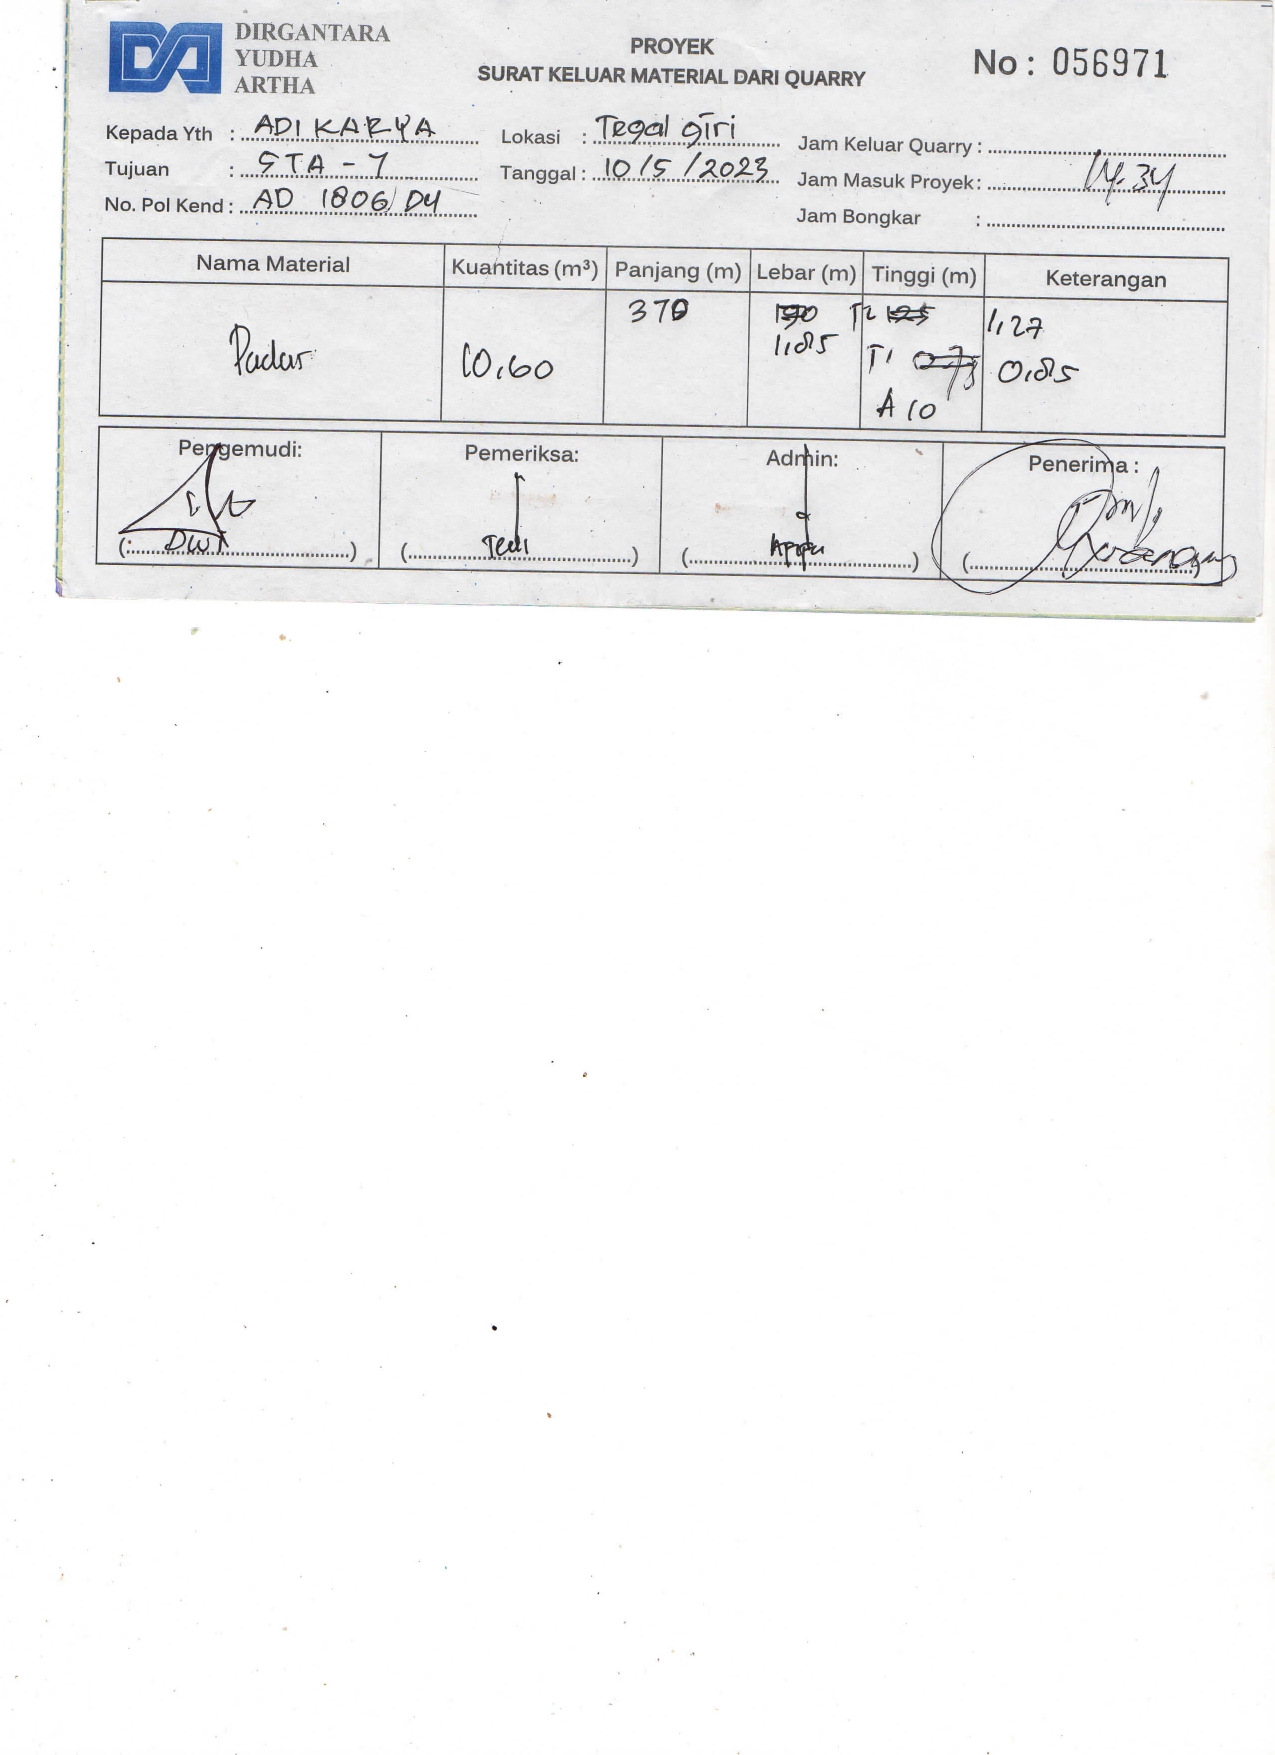 DIRGANTARA
YUDHA
ARTHA
PROYEK
SURAT KELUAR MATERIAL DARI QUARRY
No : 056971
Kepada Yth : ADI KARYA
Tujuan : STA - 7
No. Pol Kend : AD 1806 DY
Lokasi : Tegal giri
Tanggal : 10/5/2023
Jam Keluar Quarry :
Jam Masuk Proyek : 14.34
Jam Bongkar :
Nama Material Kuantitas (m³) Panjang (m) Lebar (m) Tinggi (m) Keterangan
370 190 T2 125 1,27
Padas 10,60 1,85 T1 0,85
A 10
Pengemudi: Pemeriksa: Admin: Penerima :
(DWI) (Tedi) ( ) ( )